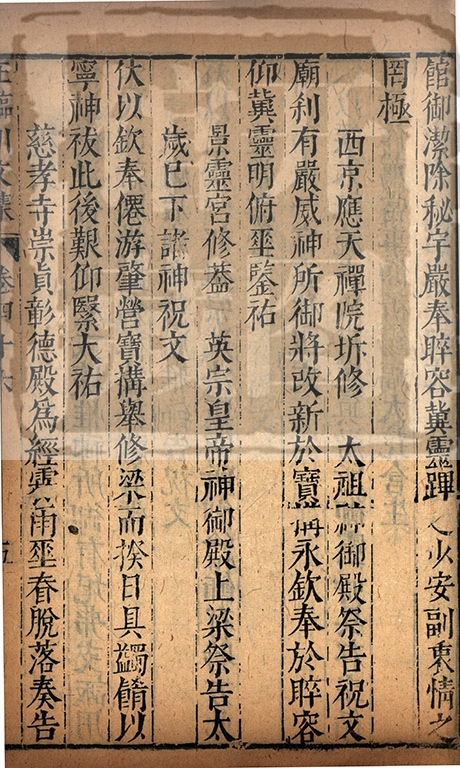 館御潔除秘宇嚴奉睟容冀靈蹕之少安副衷情之
罔極
西京應天禪院拆修　太祖神御殿祭告祝文
廟利有嚴威神所御將改新於寶構永欽奉於睟容
仰冀靈明俯垂鑒祐
景靈宮修葢　英宗皇帝神御殿上梁祭告太
歲巳下諸神祝文
伏以欽奉僊游肇營寶構舉修梁而揆日具蠲餚以
寧神祓此後艱仰繄大祐
慈孝寺崇貞彰德殿爲經雨垂脊脫落奏告
王臨川文集　卷四十六　五